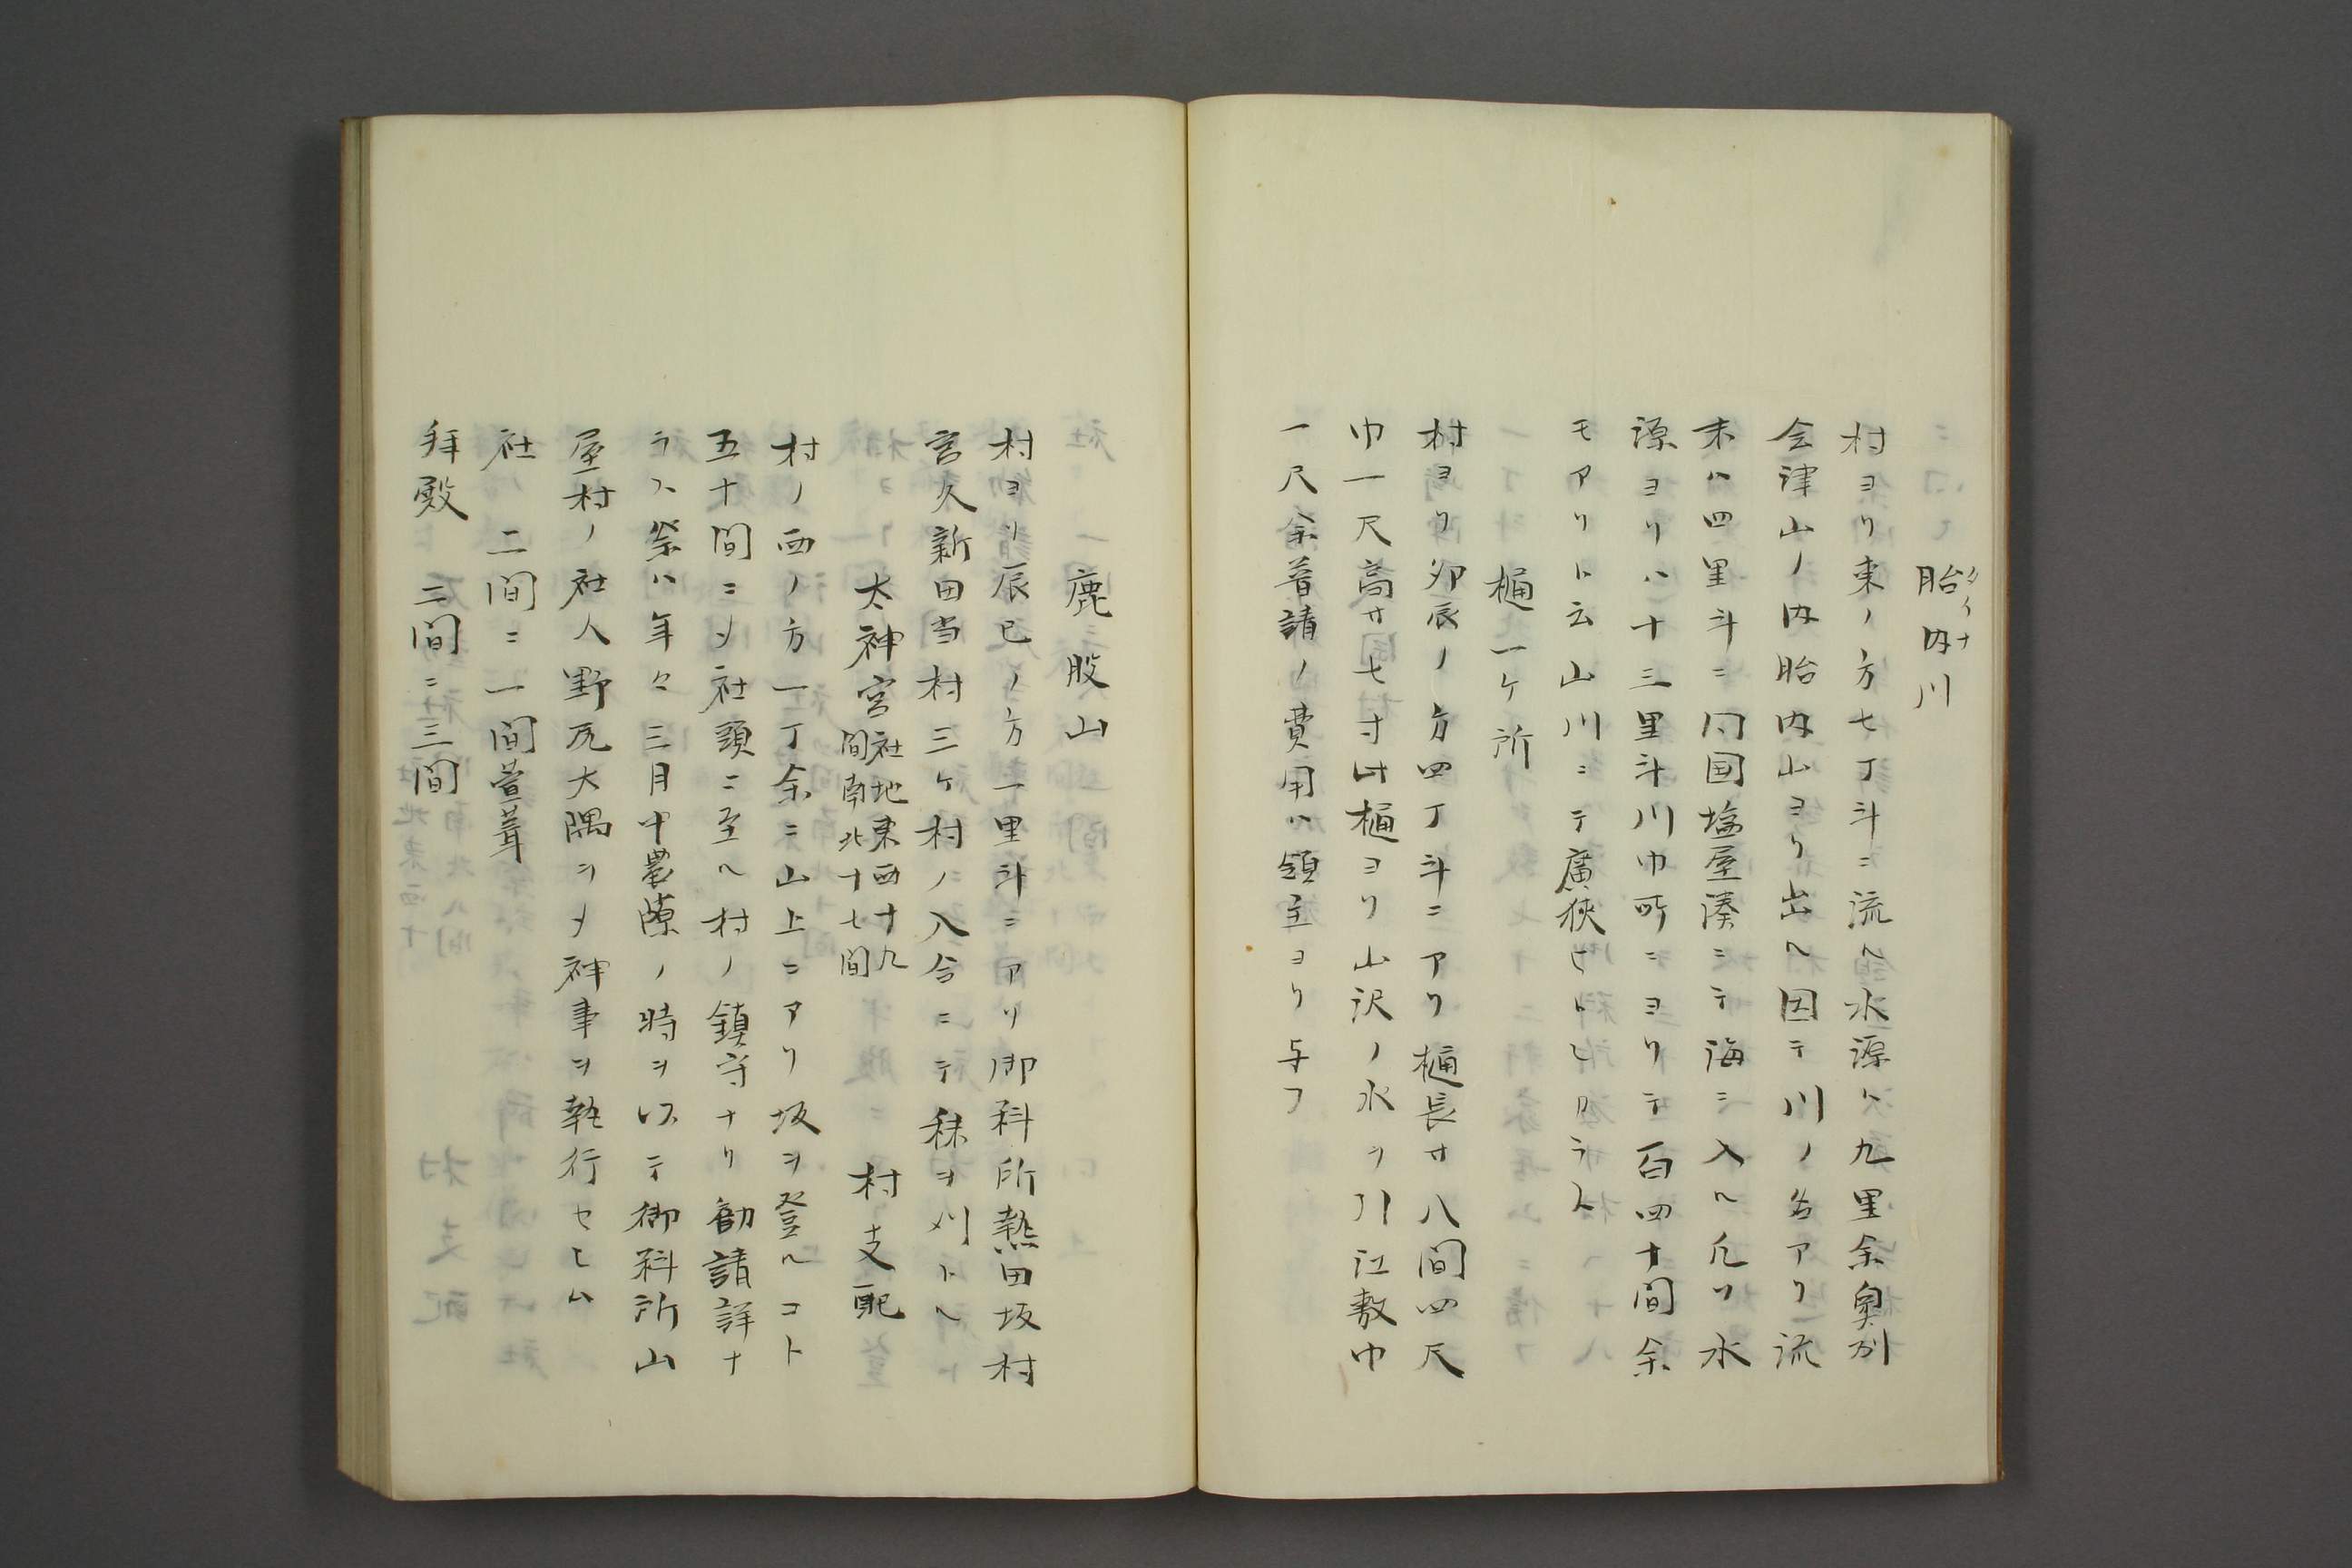 胎内川
タイナ
村ヨリ東ノ方七丁斗ニ流ル水源ハ九里余奥列
会津山ノ内胎内山ヨリ出ル因テ川ノ名アリ流
末ハ四里斗ニ〆同国塩屋湊ニテ海ニ入ル凢ソ水
源ヨリハ十三里斗川巾所ニヨリテ百四十間余
モアリト云山川ニテ廣狭サ
樋一ケ所
村ヨリ卯辰ノ方四丁斗ニアリ樋長サ八間四尺
巾一尺高サ七寸此樋ヨリ山沢ノ水ヲ引江敷巾
一尺余普請ノ費用ハ領主ヨリ与フ
鹿股山
村ヨリ辰巳ノ方一里斗ニアリ御料所熱田坂村
宮久新田当村三ケ村ノ入会ニテ秣ヲ刈トル
太神宮 社地東西十九
間南北十七間 村支配
村ノ西ノ方一丁余ニ山上ニアリ坂ヲ登ルコト
五十間ニ〆社頭ニ至ル村ノ鎮守ナリ勧請詳ナ
ラス祭ハ年々三月中農隙ノ時ヲ以テ御料所山
屋村ノ社人野瓦大隅ヲ〆神事ヲ執行セシム
社 二間ニ一間萱葺
拝殿 二間ニ三間